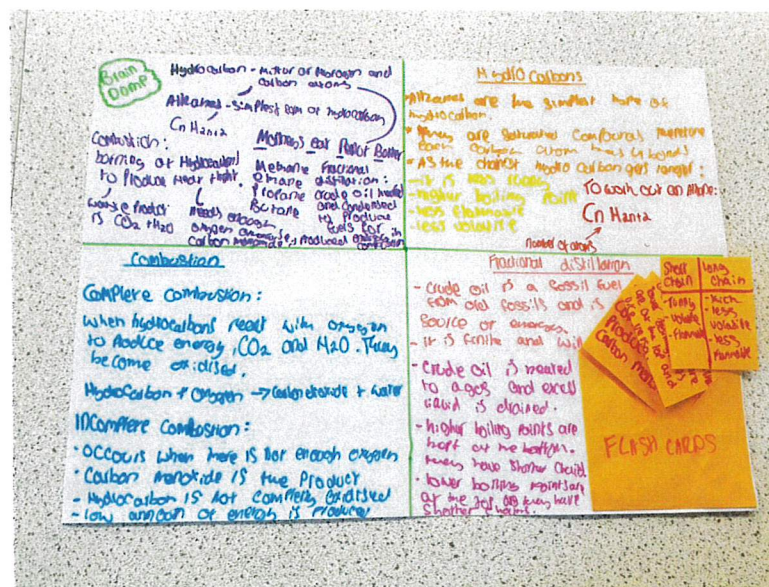 Brain
Domp
Hydrocarbon - mixtur of Hydrogen and
carbon atoms
Alkanes - simplest form of hydrocarbon
Cn H2n+2
Mothers eat Parrot Butter
Combustion:
burning of Hydrocarbons
to Produce Heat + light.
waste Product
is CO2 + H2O
needs enough
oxygen otherwise
carbon monoxide is produced
Methane
ethane
Propane
Butane
Fractional
distillation:
crude oil heated
and condensed
to produce
fuels for
Hydro Carbons
Alkanes are the simplest type of
hydrocarbon.
They are saturated compounds therefore
each carbon atom has 4 bonds
- As the chain of hydro carbon gets longer:
- it is less runny
- higher boiling Point
- less flammable
- less volatile
To work out an Alkane:
Cn H2n+2
number of atoms
Combustion
Complete combustion:
when hydrocarbons react with oxygen
to Produce energy, CO2 and H2O. They
become oxidised.
Hydrocarbon + Oxygen → carbon dioxide + water
Incomplete combustion:
· Occurs when there is not enough oxygen
· Carbon monoxide is the Product
- Hydrocarbon is not completly oxidised
- low amount of energy is produced
Fractional distillation
- Crude oil is a fossil fuel
from old fossils and is
source of energy.
- it is finite and will
- Crude oil is heated
to a gas and excess
liquid is drained.
- higher boiling Points are
at the bottom.
they have shorter chains
· lower boiling points are
at the top as they have
shorter chains.
Short
chain
long
chain
- runny
- volatile
- Flammable
- thick
- less
volatile
- less
flammable
Produces
Carbon mono
FLASH CARDS